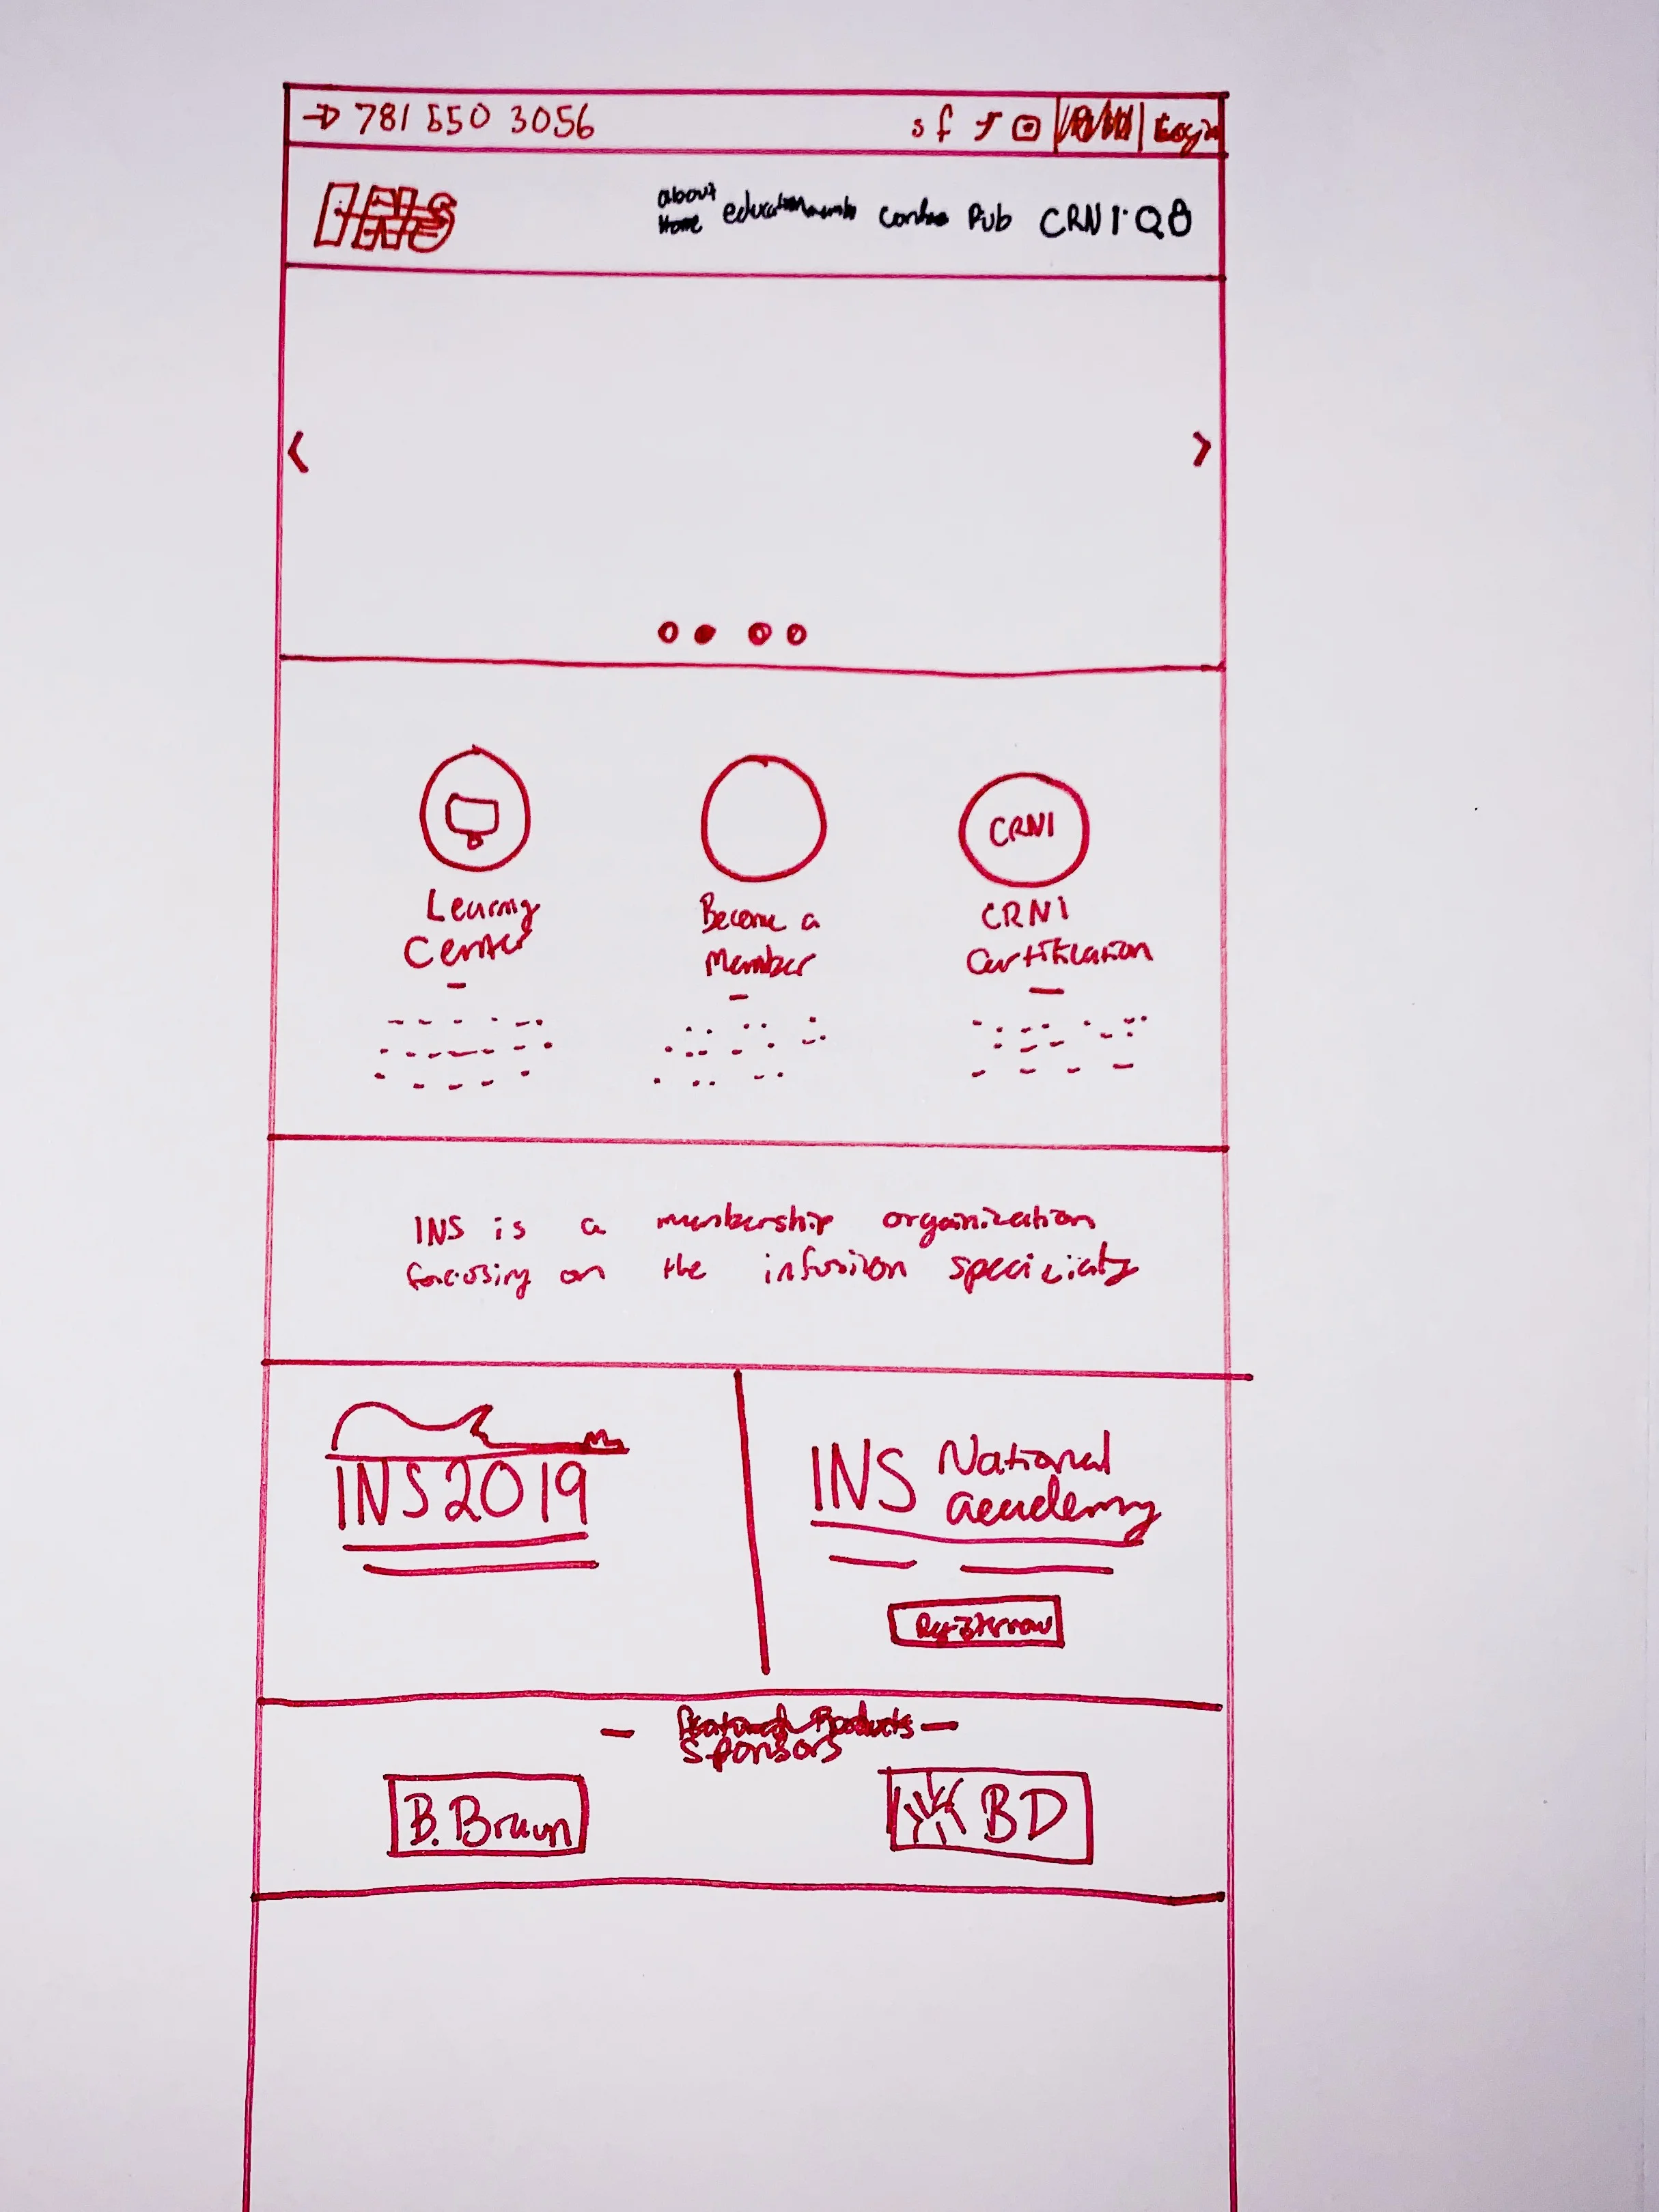 781 550 3056
s f Login
INS
about
Home education memb Pub CRNI
CRNI
Learning
Center
Become a
Member
CRNI
Certification
INS is a membership organization
focusing on the infusion
INS 2019
INS National
academy
Register now
Featured Products
Sponsors
B. Braun
BD